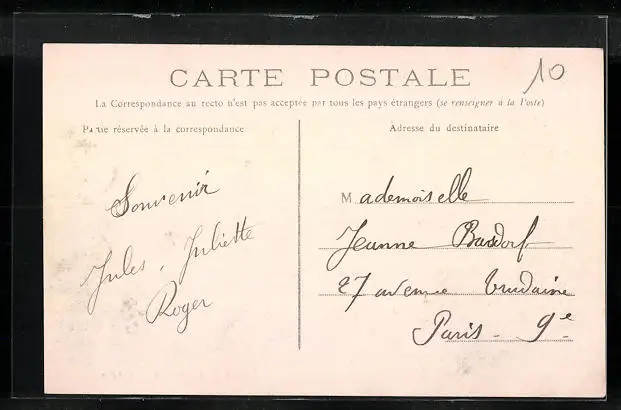 10
CARTE POSTALE
La Correspondance au recto n'est pas acceptée par tous les pays étrangers (se renseigner à la Poste)
Partie réservée à la correspondance
Adresse du destinataire
Souvenir
Jules, Juliette
Roger
Mademoiselle
Jeanne
27 avenue Trudaine
Paris - 9e